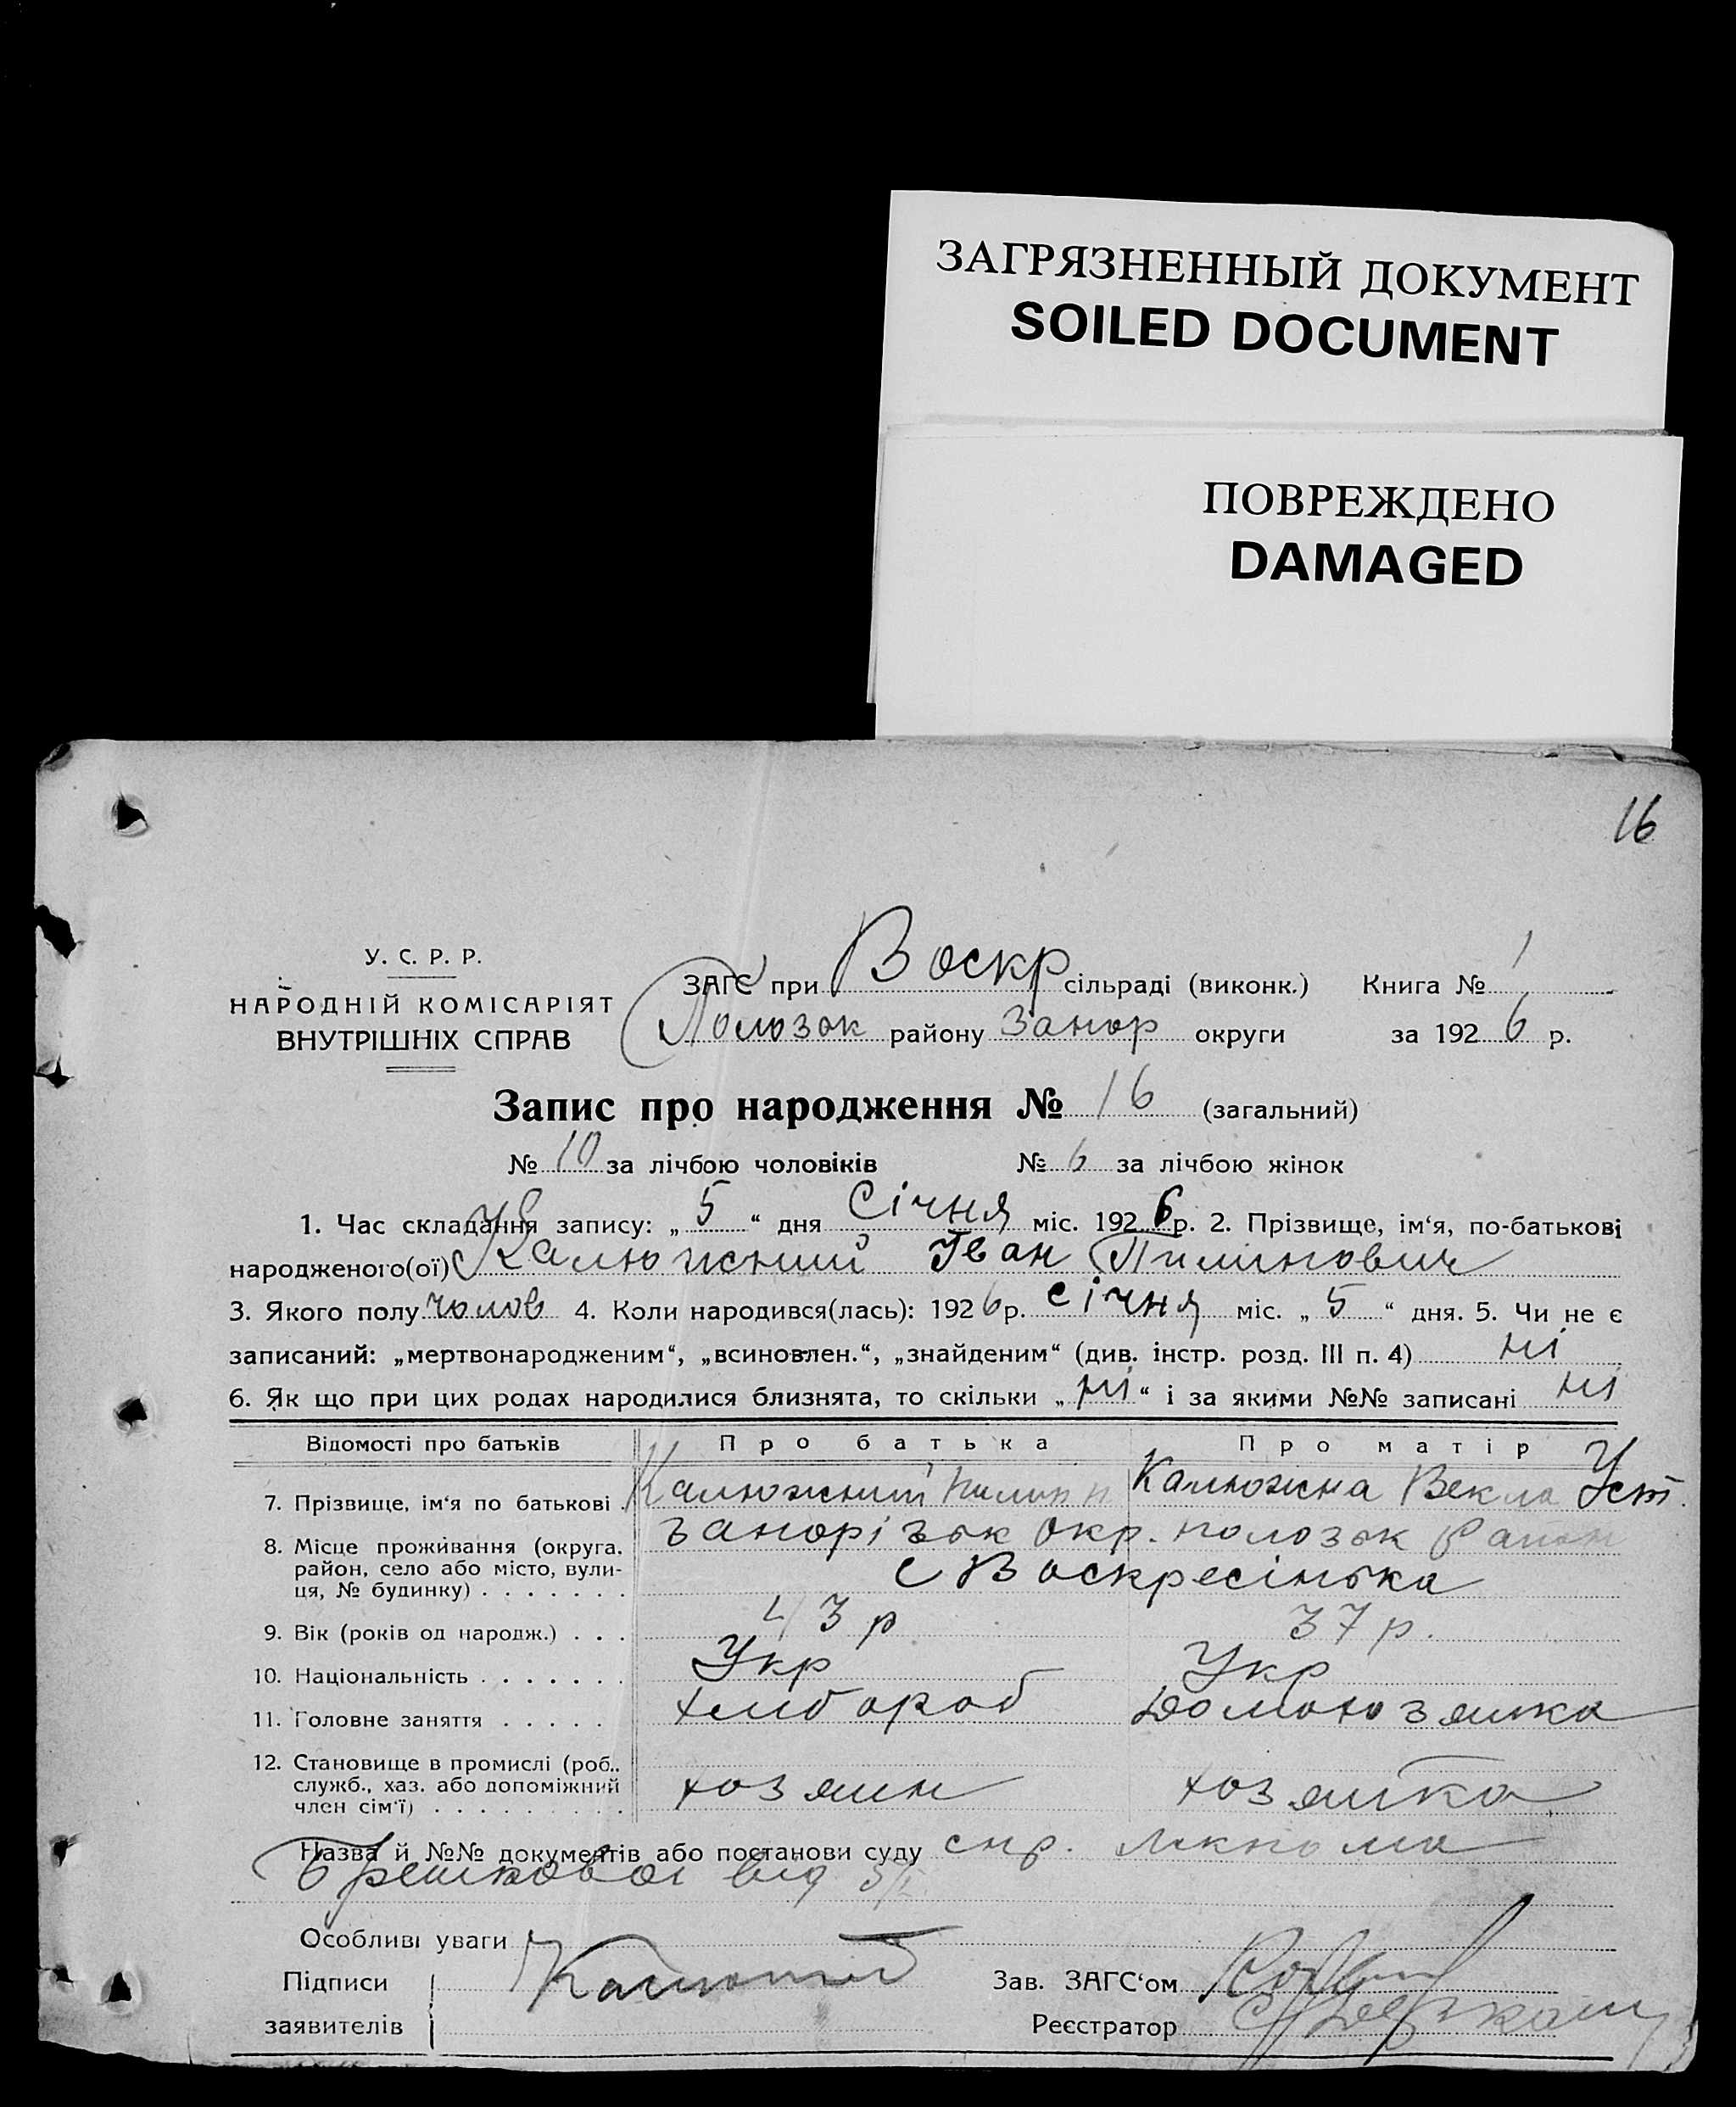 ЗАГРЯЗНЕННЫЙ ДОКУМЕНТ
SOILED DOCUMENT
ПОВРЕЖДЕНО
DAMAGED
16
У. С. Р. Р.
НАРОДНІЙ КОМІСАРІЯТ
ВНУТРІШНІХ СПРАВ
ЗАГС при Воскр сільраді (виконк.) Книга № 1
Полозок району Запор округи за 1926 р.
Запис про народження № 16 (загальний)
№ 10 за лічбою чоловіків № 6 за лічбою жінок
1. Час складання запису: „5“ дня Січня міс. 1926 р. 2. Прізвище, ім'я, по-батькові
народженого(ої) Калюжний Іван Пилипович
3. Якого полу чолов 4. Коли народився(лась): 1926 р. січня міс. „5“ дня. 5. Чи не є
записаний: „мертвонародженим“, „всиновлен.“, „знайденим“ (див. інстр. розд. III п. 4) ні
6. Як що при цих родах народилися близнята, то скільки „ні“ і за якими №№ записані ні
Відомості про батьків Про батька Про матір
7. Прізвище, ім'я по батькові Калюжний Пилип п Калюжна Векла Уст.
8. Місце проживання (округа, район, село або місто, вулиця, № будинку) Запорізьк окр. полозьк Район
с Воскресінька
9. Вік (років од народж.) 43 р 37 р.
10. Національність Укр Укр
11. Головне заняття хлибороб
12. Становище в промислі (роб., служб., хаз. або допоміжний член сім'ї) хозяин хозяйка
Назва й №№ документів або постанови суду спр.
від 5/I
Особливі уваги
Підписи
заявителів
Зав. ЗАГС'ом
Реєстратор